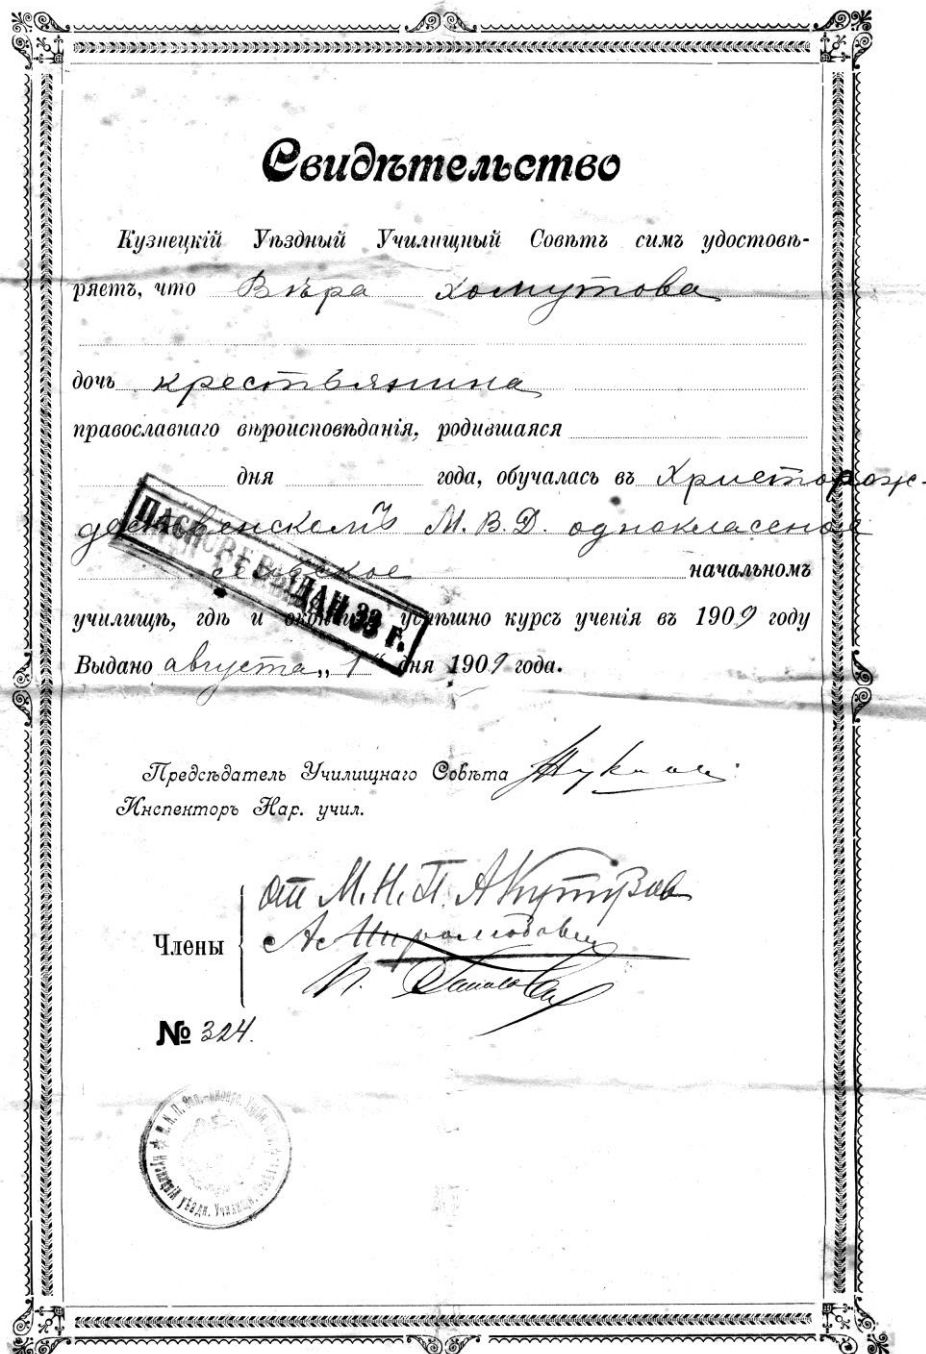 Свидѣтельство
Кузнецкій Уѣздный Училищный Совѣтъ симъ удостовѣ-
ряетъ, что Вѣра Хомутова
дочь крестьянина
православнаго вѣроисповѣданія, родившаяся
дня года, обучалась въ Христорож-
дественскомъ М. В. Д. одноклассное
сельское начальномъ
училищѣ, гдѣ и окончила успѣшно курсъ ученія въ 1909 году
Выдано августа „1“ дня 1909 года.
ПАСПОРТ ВЫДАН 33 г.
Предсѣдатель Училищнаго Совѣта
Инспекторъ Нар. учил.
от М. Н. П. А
Члены
№ 324.
Кузнецкій уѣздн. Училищн.